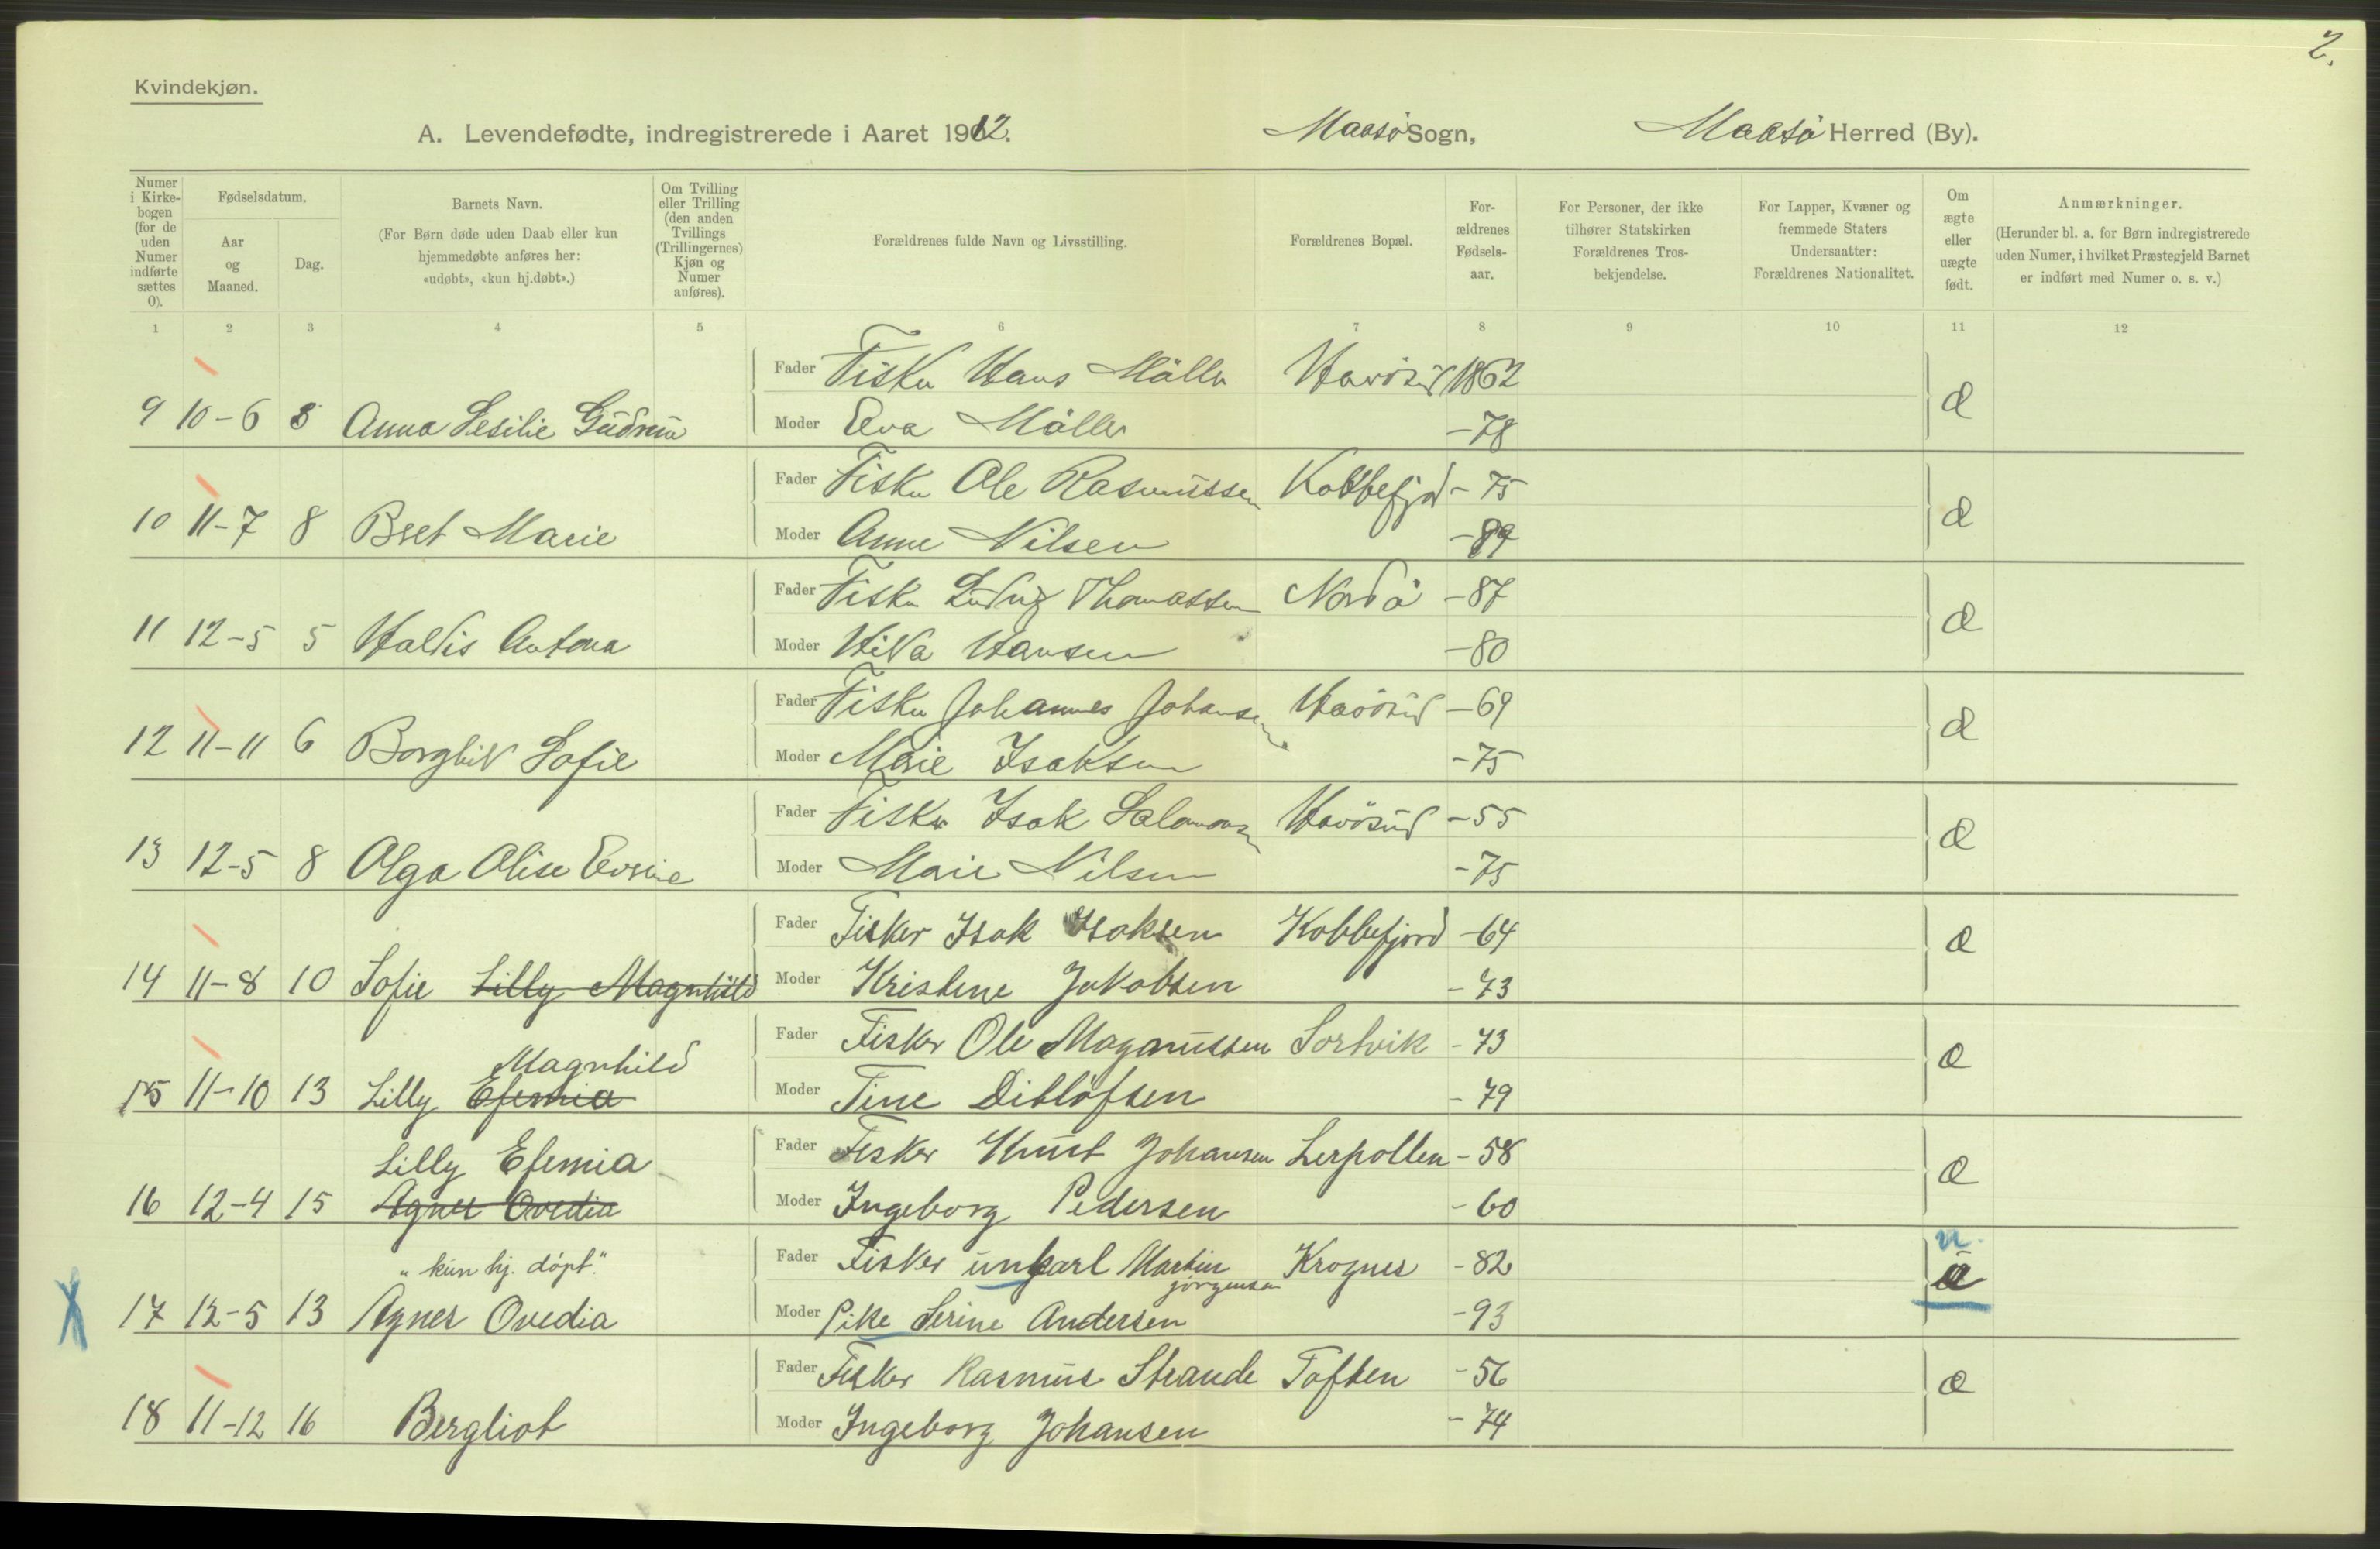 2.
Kvindekjøn.
A. Levendefødte, indregistrerede i Aaret 1912. Maasö Sogn, Maasö Herred (By).
Numer i Kirke-bogen (for de uden Numer indførte sættes 0).
Fødselsdatum.
Aar og Maaned.
Dag.
Barnets Navn.
(For Børn døde uden Daab eller kun hjemmedøbte anføres her: «udøbt», «kun hj.døbt».)
Om Tvilling eller Trilling (den anden Tvillings (Trillingernes) Kjøn og Numer anføres).
Forældrenes fulde Navn og Livsstilling.
Forældrenes Bopæl.
For-ældrenes Fødsels-aar.
For Personer, der ikke tilhører Statskirken Forældrenes Tros-bekjendelse.
For Lapper, Kvæner og fremmede Staters Undersaatter: Forældrenes Nationalitet.
Om ægte eller uægte født.
Anmærkninger.
(Herunder bl. a. for Børn indregistrerede uden Numer, i hvilket Præstegjeld Barnet er indført med Numer o. s. v.)
1 2 3 4 5 6 7 8 9 10 11 12
Fader Fisker Hans Möller Havösund 1862
9 10-6 3 Anna Sesilie Gudrun Moder Eva Möller -78 Æ
Fader Fisker Ole Rasmussen Kobbefjord -75
10 11-7 8 Bret Marie Moder Anne Nilsen -89 Æ
Fader Fisker Ludvig Thomassen Nordö -87
11 12-5 5 Haldis Antona Moder Hilda Hansen -80 Æ
Fader Fisker Johannes Johansen Havösund -69
12 11-11 6 Borghild Sofie Moder Marie Isaksen -75 Æ
Fader Fisker Isak Salomonsen Havösund -55
13 12-5 8 Olga Alise Evsine Moder Marie Nilsen -75 Æ
Fader Fisker Isak Isaksen Kobbefjord -64
14 11-8 10 Sofie Lilly Magnhild Moder Kristine Jakobsen -73 Æ
Fader Fisker Ole Magnussen Sortvik -73
Magnhild
15 11-10 13 Lilly Efemia Moder Tine Ditlöfsen -79 Æ
Fader Fisker Knut Johansen Lerpollen -58
Lilly Efemia
16 12-4 15 Agnes Ovedia Moder Ingeborg Pedersen -60 Æ
Fader Fisker ungkarl Martin Jörgensen Krognes -82
"kun hj. döpt."
u.
17 12-5 13 Agnes Ovedia Moder Pike Serine Andersen -93
Fader Fisker Rasmus Strande Toften -56
18 11-12 16 Bergliot Moder Ingeborg Johansen -74 Æ